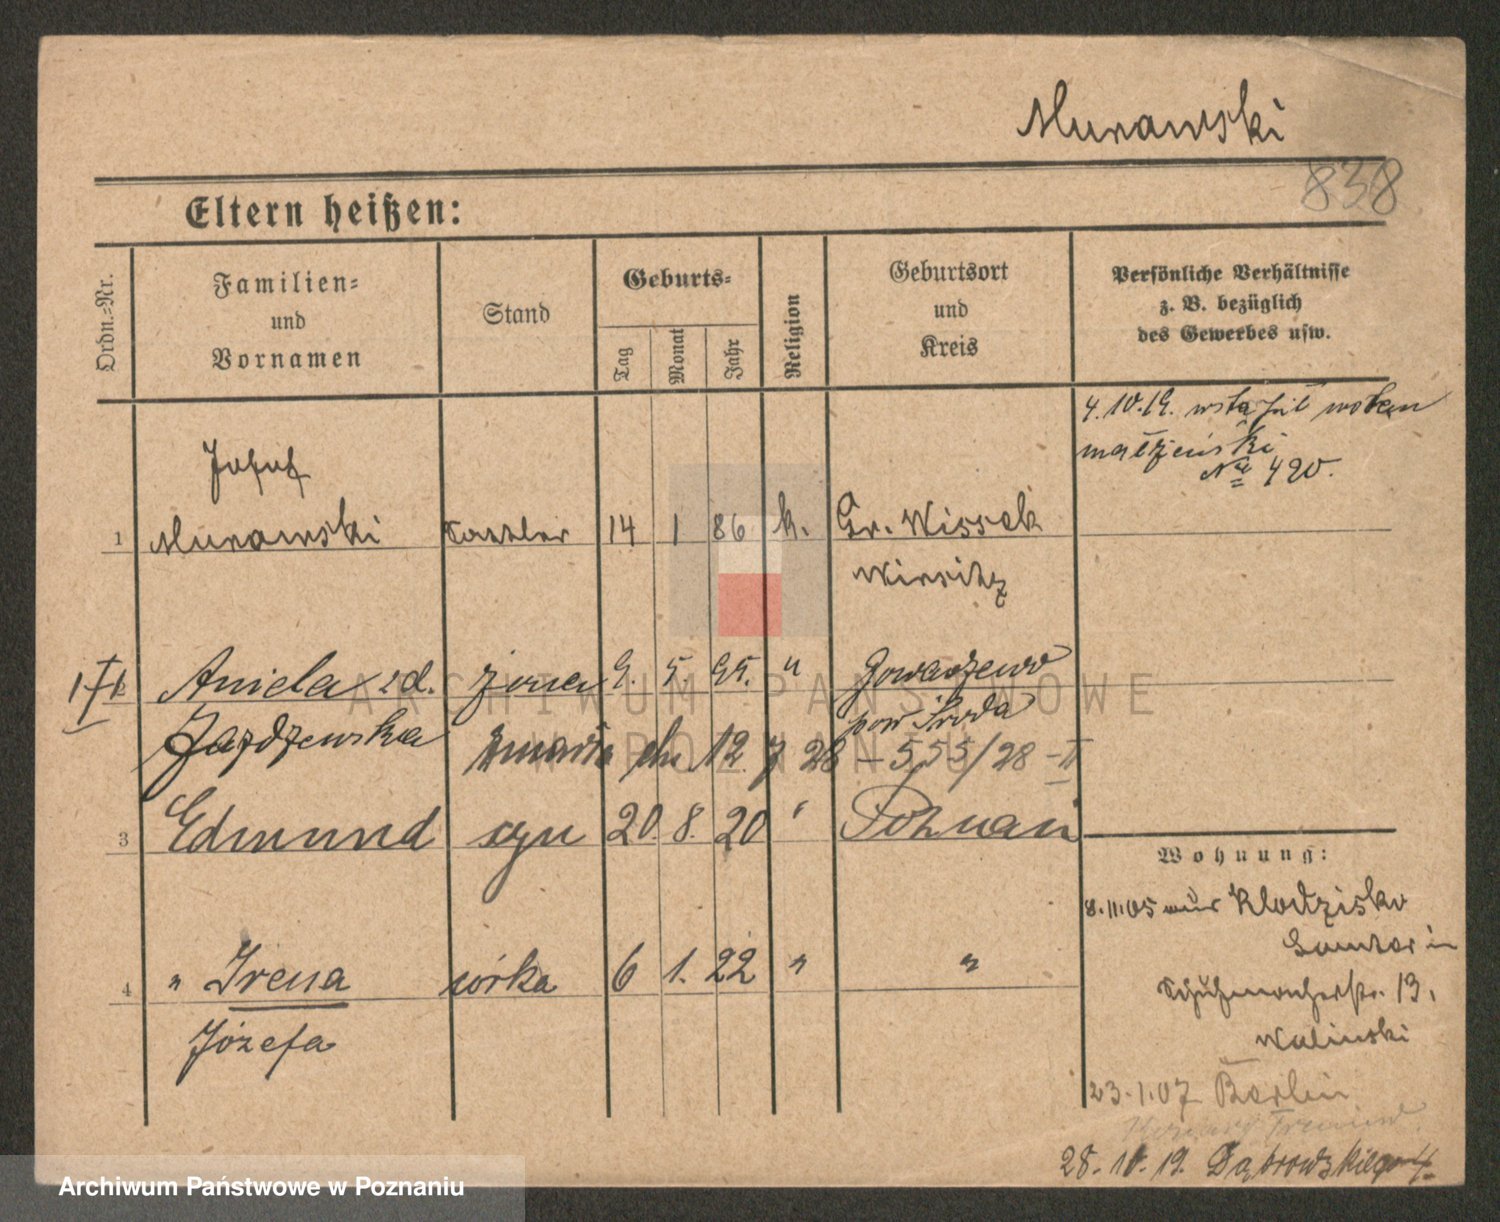 Murawski
838
Eltern heißen:
Ordn.=Nr.
Familien=
und
Vornamen
Stand
Geburts=
Tag
Monat
Jahr
Religion
Geburtsort
und
Kreis
Persönliche Verhältnisse
z. B. bezüglich
des Gewerbes usw.
4.10.19. wstąpił
małżeński
No 420.
Josef
1 Murawski Sattler 14 1 86 k. Gr. Wissek
Wirsitz
Aniela zd. żona 9. 5 95. " Gowarzewo
Jazdzewska pow Środa
zmarła dn. 12 7 28 – 555/28 – II
3 Edmund syn 20. 8. 20 " Poznań
Wohnung:
8.11.05
Samter in
4 " Irena córka 6 1. 22 " "
Józefa
Schuhmacherstr. 13.
Walinski
23.1.07 Berlin
28.10.19. Dąbrowskiego
ARCHIWUM PAŃSTWOWE
W POZNANIU
Archiwum Państwowe w Poznaniu